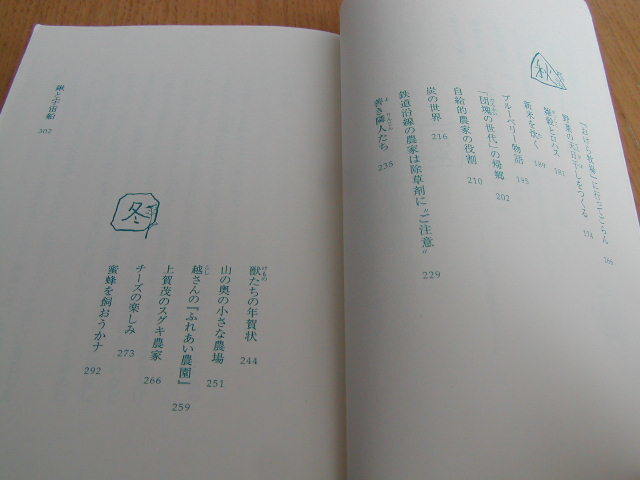 秋
「おけら牧場」に行ってごらん 166
野菜の天日干しをつくる 174
雑穀とロハス 181
新米を炊く 189
ブルーベリー物語 195
「団塊の世代」の帰郷 202
自給的農家の役割 210
炭の世界 216
鉄道沿線の農家は除草剤に“ご注意” 229
善き隣人たち 235
冬
獣たちの年賀状 244
山の奥の小さな農場 251
越さんの『ふれあい農園』 259
上賀茂のスグキ農家 266
チーズの楽しみ 273
蜜蜂を飼おうかナ 292
鍬と宇宙船 302